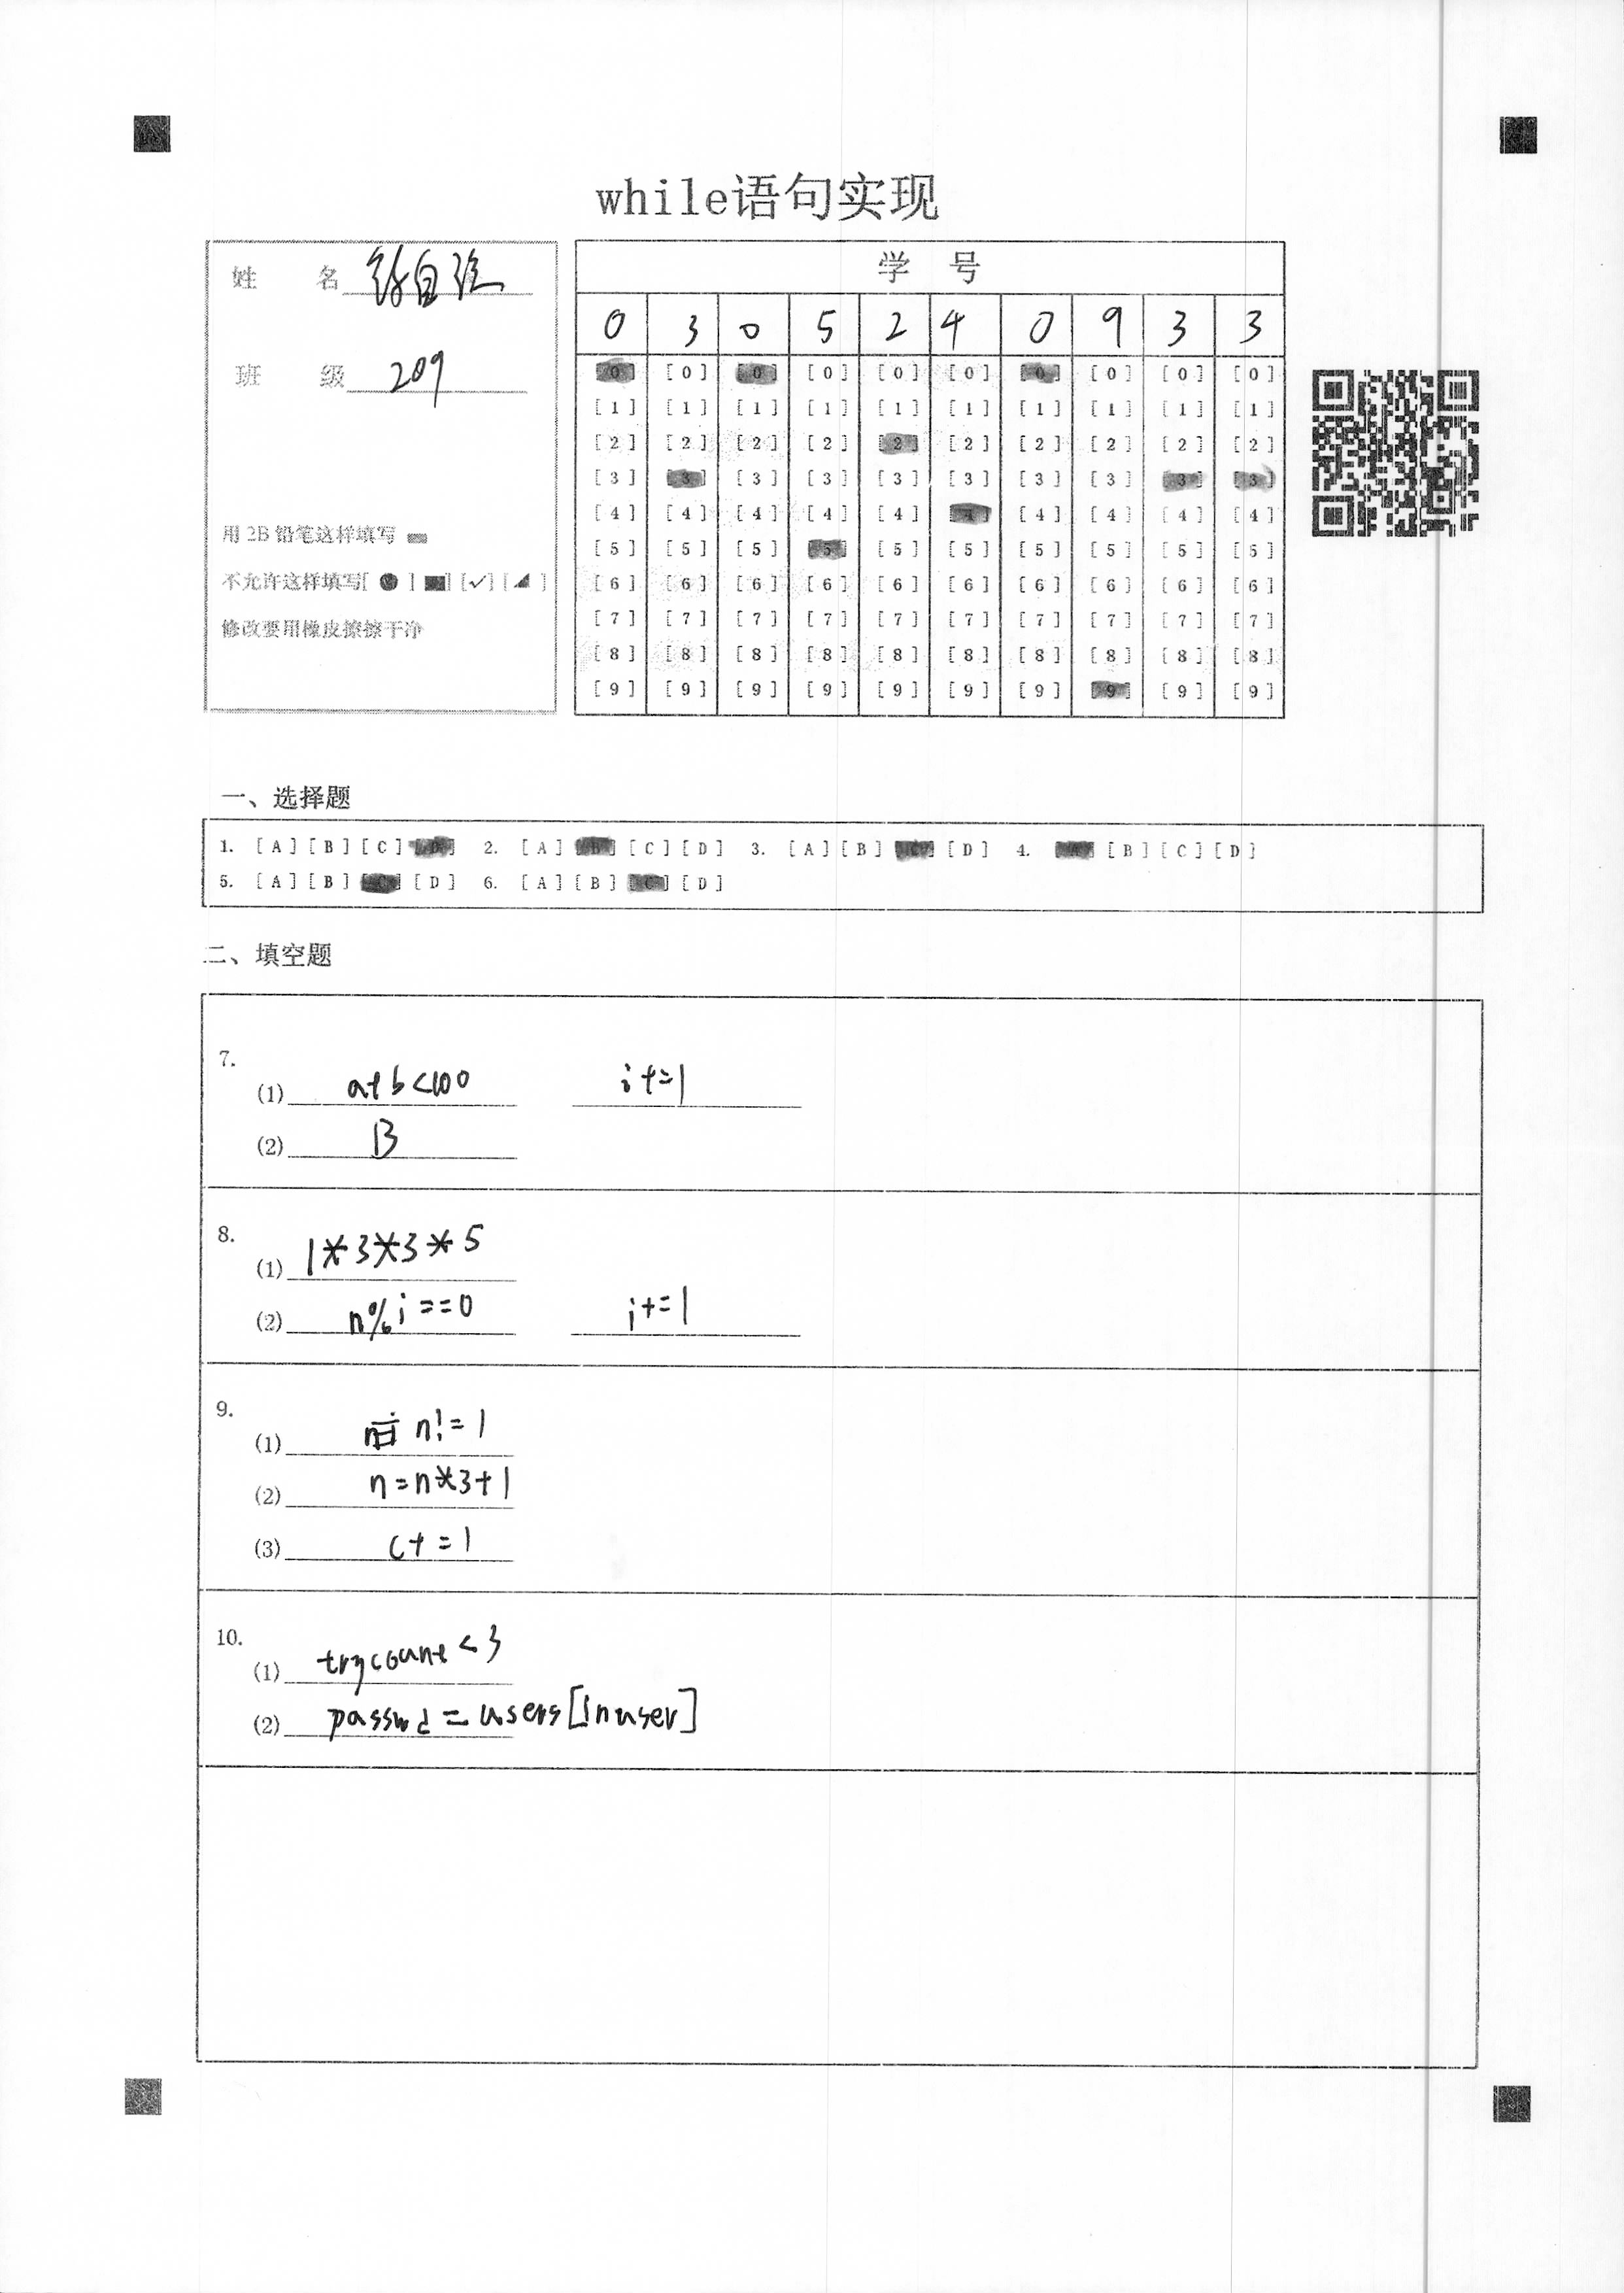 while语句实现
姓 名
班 级 209
用 2B 铅笔这样填写
不允许这样填写[ ● ] [■] [✓] [◢ ]
修改要用橡皮擦擦干净
学 号
0 3 0 5 2 4 0 9 3 3
[0] [0] [0] [0] [0] [0] [0] [0] [0] [0]
[1] [1] [1] [1] [1] [1] [1] [1] [1] [1]
[2] [2] [2] [2] [2] [2] [2] [2] [2] [2]
[3] [3] [3] [3] [3] [3] [3] [3] [3] [3]
[4] [4] [4] [4] [4] [4] [4] [4] [4] [4]
[5] [5] [5] [5] [5] [5] [5] [5] [5] [5]
[6] [6] [6] [6] [6] [6] [6] [6] [6] [6]
[7] [7] [7] [7] [7] [7] [7] [7] [7] [7]
[8] [8] [8] [8] [8] [8] [8] [8] [8] [8]
[9] [9] [9] [9] [9] [9] [9] [9] [9] [9]
一、选择题
1. [A] [B] [C] [D] 2. [A] [B] [C] [D] 3. [A] [B] [C] [D] 4. [A] [B] [C] [D]
5. [A] [B] [C] [D] 6. [A] [B] [C] [D]
二、填空题
7.
(1) a+b<100 i+=1
(2) B
8.
(1) 1*3*3*5
(2) n%i==0 i+=1
9.
(1) n!=1
(2) n=n*3+1
(3) c+=1
10.
(1) trycount<3
(2) passwd=users[inuser]